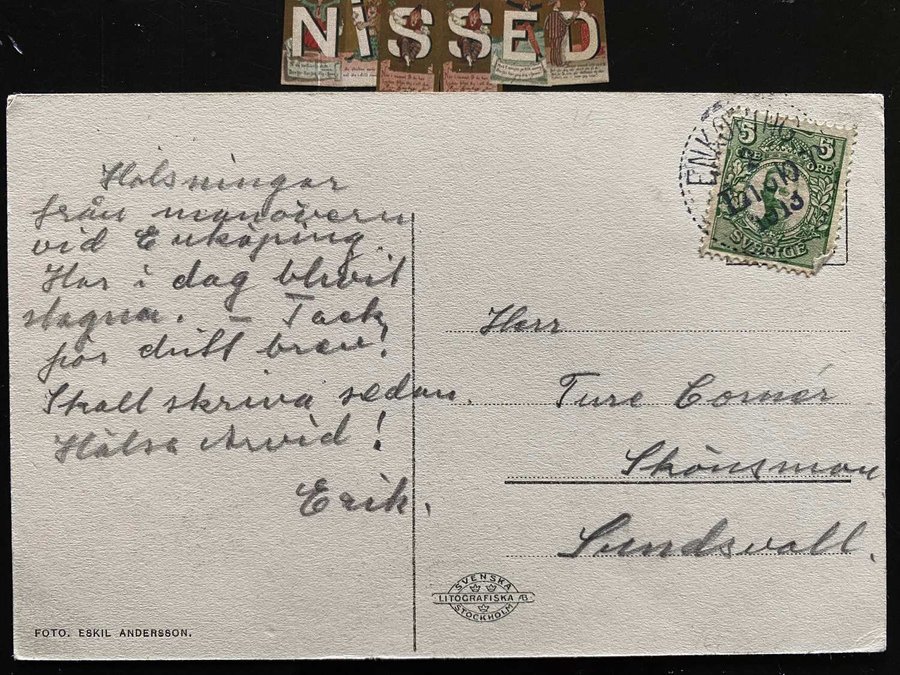 NISSED
Hälsningar
från manövern
vid Enköping.
Har i dag blivit
slagna. – Tack
för ditt brev!
Skall skriva sedan.
Hälsa Arvid!
Erik.
FOTO. ESKIL ANDERSSON.
ENKÖPING
1913
5 5
ÖRE
SVERIGE
Herr
Ture Cornér
Skönsmon
Sundsvall.
SVENSKA
LITOGRAFISKA AB
STOCKHOLM